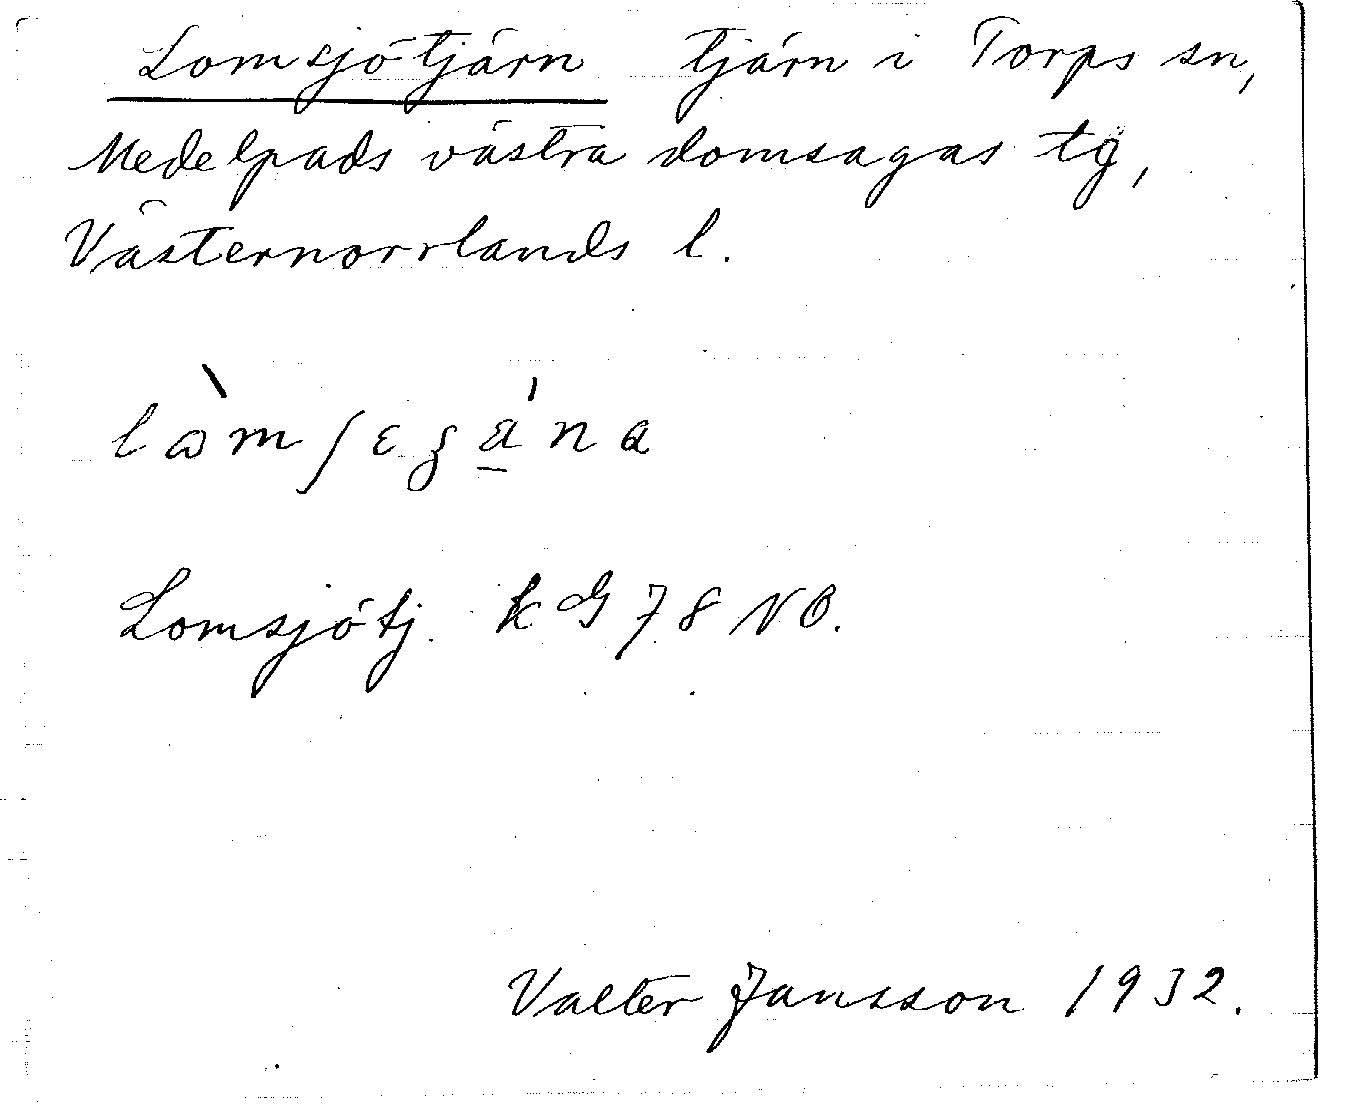 Lomsjötjärn tjärn i Torps sn,
Medelpads västra domsagas tg,
Västernorrlands l.
Lomsjötj. kG 78 NO.
Valter Jansson 1932.